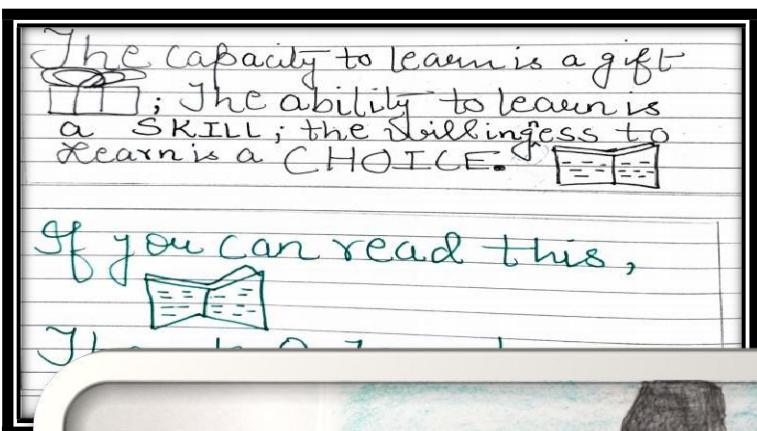 The capacity to learn is a gift
; The ability to learn is
a SKILL; the willingess to
learn is a CHOICE.
If you can read this,